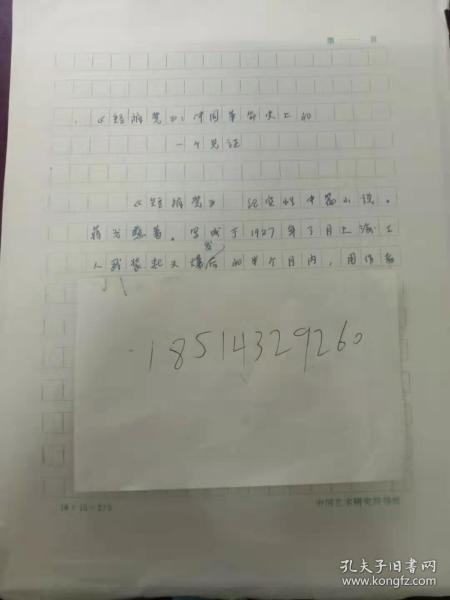 第一页
《短裤党》：中国革命史上的
一个见证
《短裤党》 纪实性中篇小说。
蒋光慈著。写成于1927年3月上海工
人武装起义爆发后的半个月内，用作者
18514329260
18×15=270
中国艺术研究院稿纸
孔夫子旧书网
www.kongfz.com